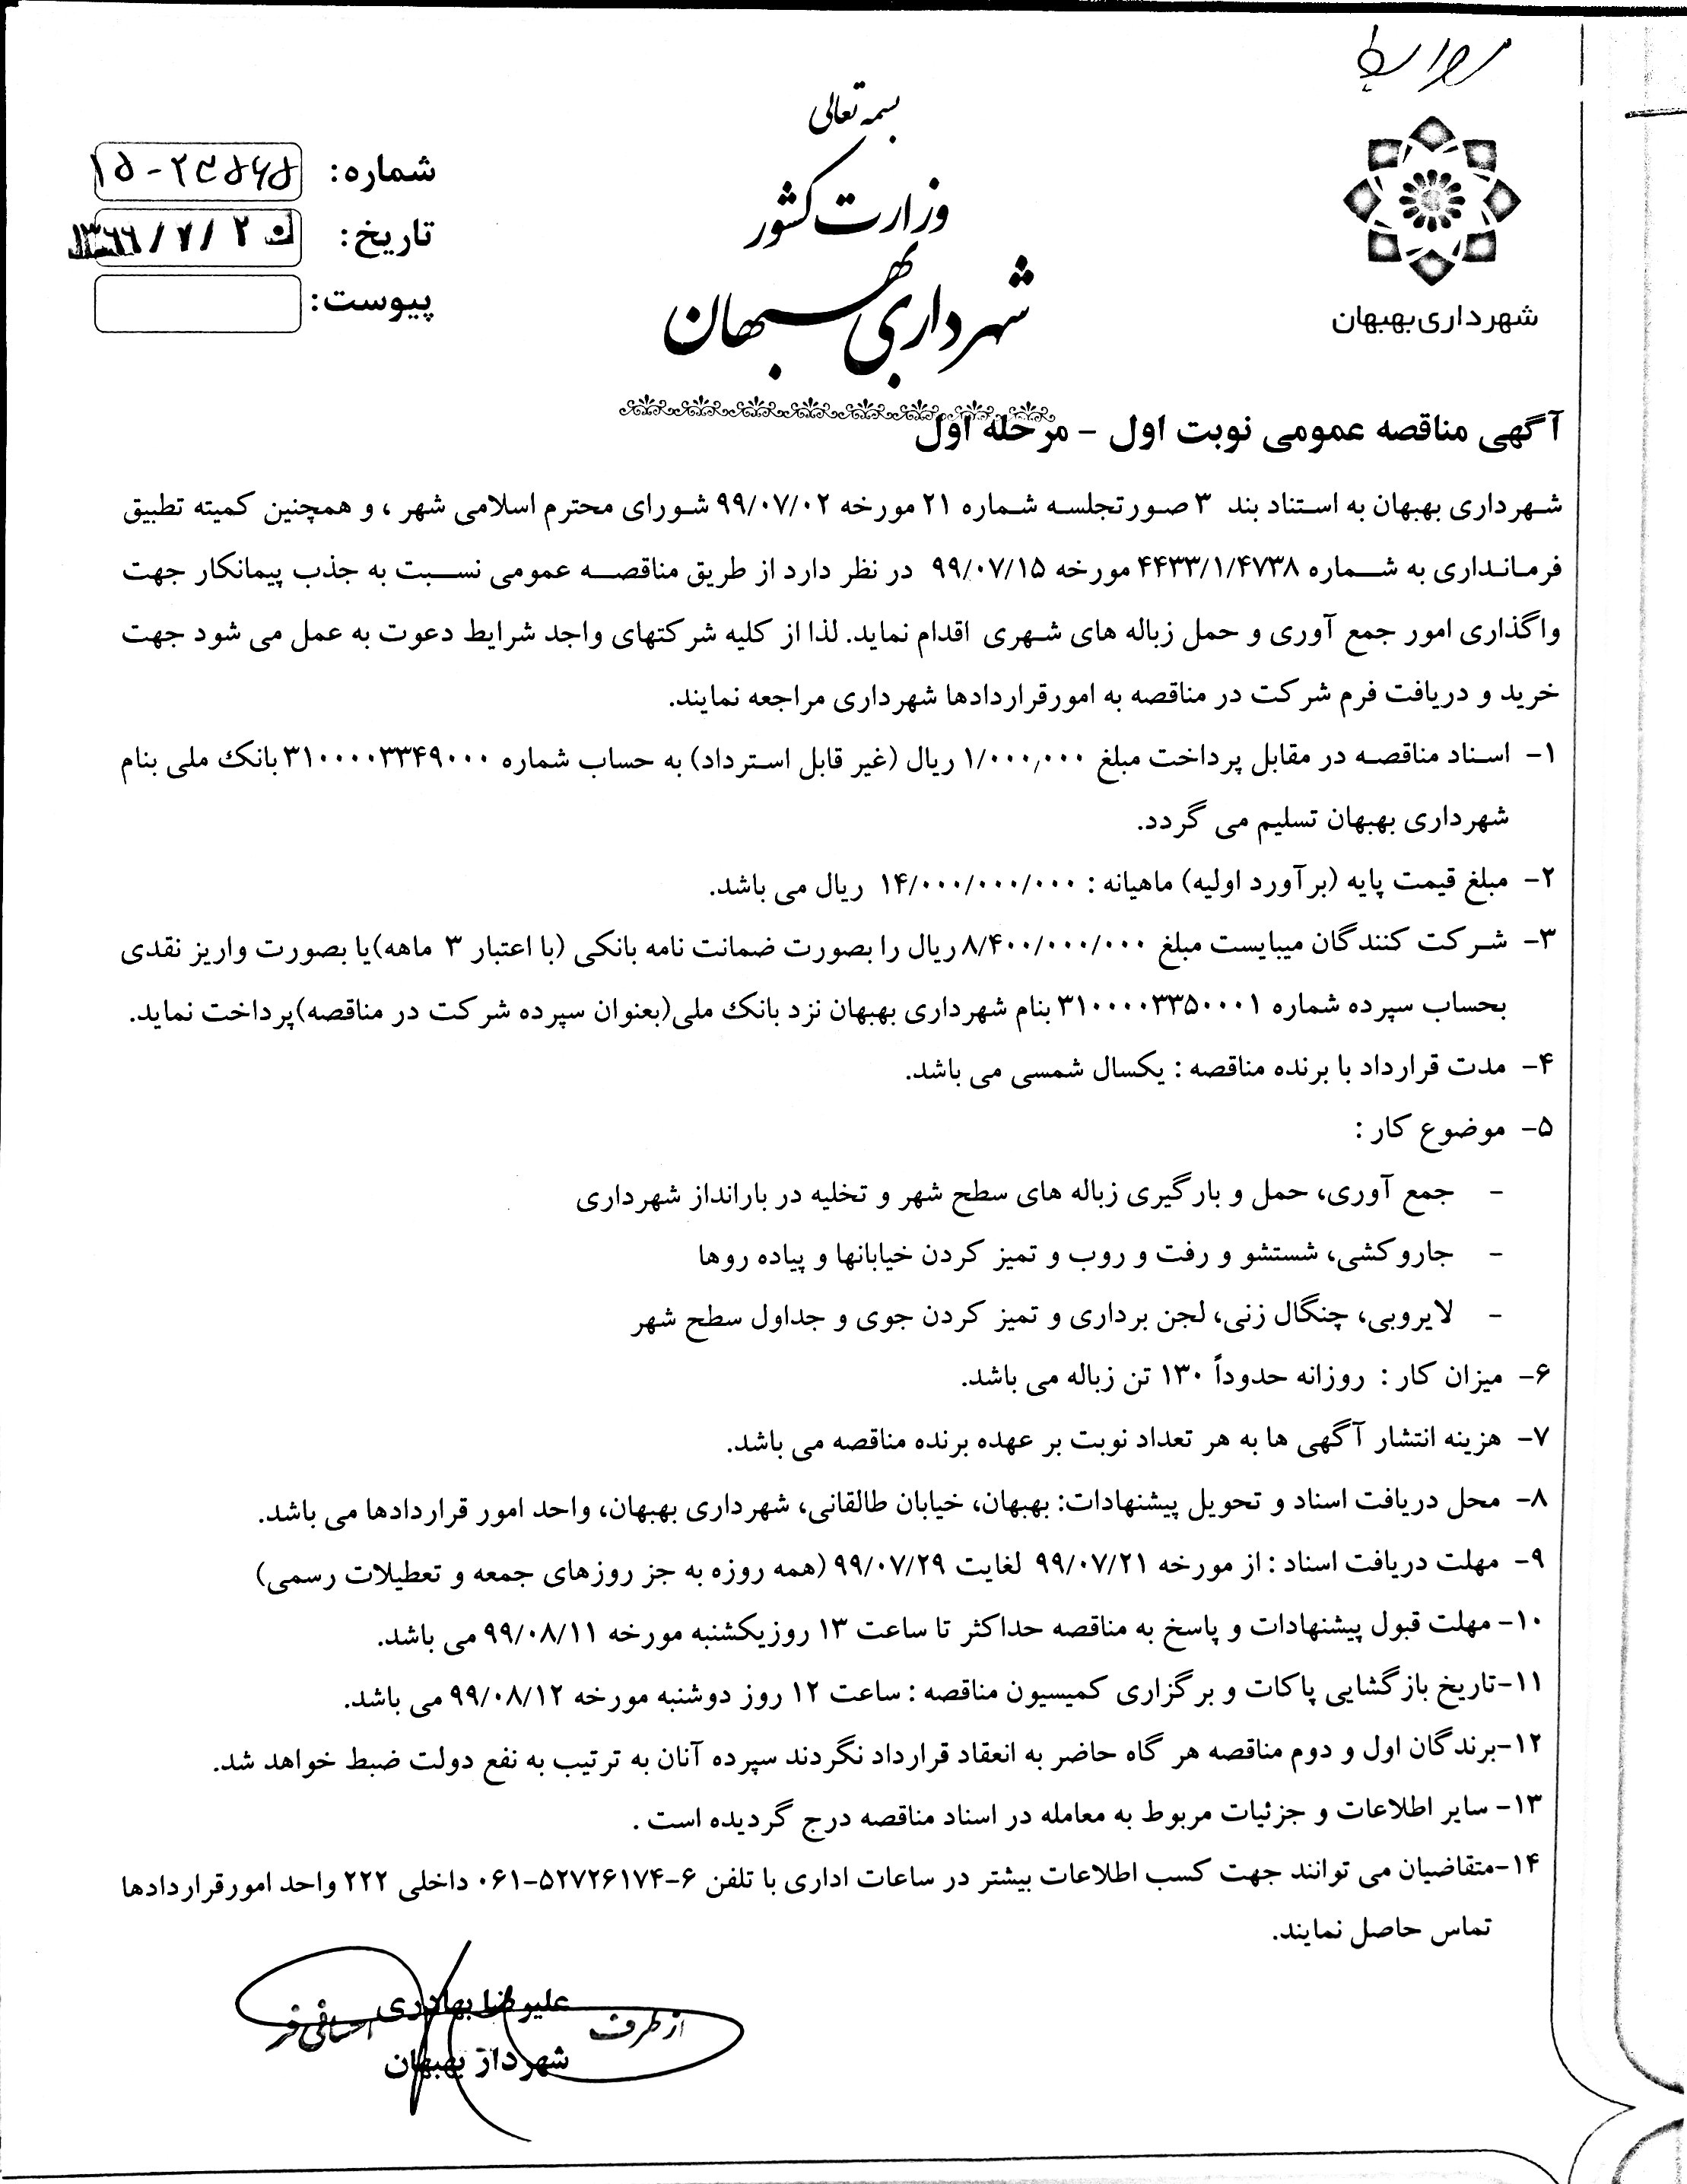 بسمه تعالی
وزارت کشور
شهرداری بهبهان
شهرداری بهبهان
شماره:
تاریخ:
پیوست:
آگهی مناقصه عمومی نوبت اول - مرحله اول
شهرداری بهبهان به استناد بند ۳ صورتجلسه شماره ۲۱ مورخه ۹۹/۰۷/۰۲ شورای محترم اسلامی شهر ، و همچنین کمیته تطبیق
فرمانداری به شماره ۴۴۳۳/۱/۴۷۳۸ مورخه ۹۹/۰۷/۱۵ در نظر دارد از طریق مناقصه عمومی نسبت به جذب پیمانکار جهت
واگذاری امور جمع آوری و حمل زباله های شهری اقدام نماید. لذا از کلیه شرکتهای واجد شرایط دعوت به عمل می شود جهت
خرید و دریافت فرم شرکت در مناقصه به امورقراردادها شهرداری مراجعه نمایند.
۱- اسناد مناقصه در مقابل پرداخت مبلغ ۱/۰۰۰,۰۰۰ ریال (غیر قابل استرداد) به حساب شماره ۳۱۰۰۰۰۳۳۴۹۰۰۰ بانک ملی بنام
شهرداری بهبهان تسلیم می گردد.
۲- مبلغ قیمت پایه (برآورد اولیه) ماهیانه : ۱۴/۰۰۰/۰۰۰/۰۰۰ ریال می باشد.
۳- شرکت کنندگان میبایست مبلغ ۸/۴۰۰/۰۰۰/۰۰۰ ریال را بصورت ضمانت نامه بانکی (با اعتبار ۳ ماهه)یا بصورت واریز نقدی
بحساب سپرده شماره ۳۱۰۰۰۰۳۳۵۰۰۰۱ بنام شهرداری بهبهان نزد بانک ملی(بعنوان سپرده شرکت در مناقصه)پرداخت نماید.
۴- مدت قرارداد با برنده مناقصه : یکسال شمسی می باشد.
۵- موضوع کار :
- جمع آوری، حمل و بارگیری زباله های سطح شهر و تخلیه در بارانداز شهرداری
- جاروکشی، شستشو و رفت و روب و تمیز کردن خیابانها و پیاده روها
- لایروبی، چنگال زنی، لجن برداری و تمیز کردن جوی و جداول سطح شهر
۶- میزان کار : روزانه حدوداً ۱۳۰ تن زباله می باشد.
۷- هزینه انتشار آگهی ها به هر تعداد نوبت بر عهده برنده مناقصه می باشد.
۸- محل دریافت اسناد و تحویل پیشنهادات: بهبهان، خیابان طالقانی، شهرداری بهبهان، واحد امور قراردادها می باشد.
۹- مهلت دریافت اسناد : از مورخه ۹۹/۰۷/۲۱ لغایت ۹۹/۰۷/۲۹ (همه روزه به جز روزهای جمعه و تعطیلات رسمی)
۱۰- مهلت قبول پیشنهادات و پاسخ به مناقصه حداکثر تا ساعت ۱۳ روزیکشنبه مورخه ۹۹/۰۸/۱۱ می باشد.
۱۱-تاریخ بازگشایی پاکات و برگزاری کمیسیون مناقصه : ساعت ۱۲ روز دوشنبه مورخه ۹۹/۰۸/۱۲ می باشد.
۱۲-برندگان اول و دوم مناقصه هر گاه حاضر به انعقاد قرارداد نگردند سپرده آنان به ترتیب به نفع دولت ضبط خواهد شد.
۱۳- سایر اطلاعات و جزئیات مربوط به معامله در اسناد مناقصه درج گردیده است .
۱۴-متقاضیان می توانند جهت کسب اطلاعات بیشتر در ساعات اداری با تلفن ۶-۵۲۷۲۶۱۷۴-۰۶۱ داخلی ۲۲۲ واحد امورقراردادها
تماس حاصل نمایند.
علیرضا بهادری
از طرف
شهردار بهبهان